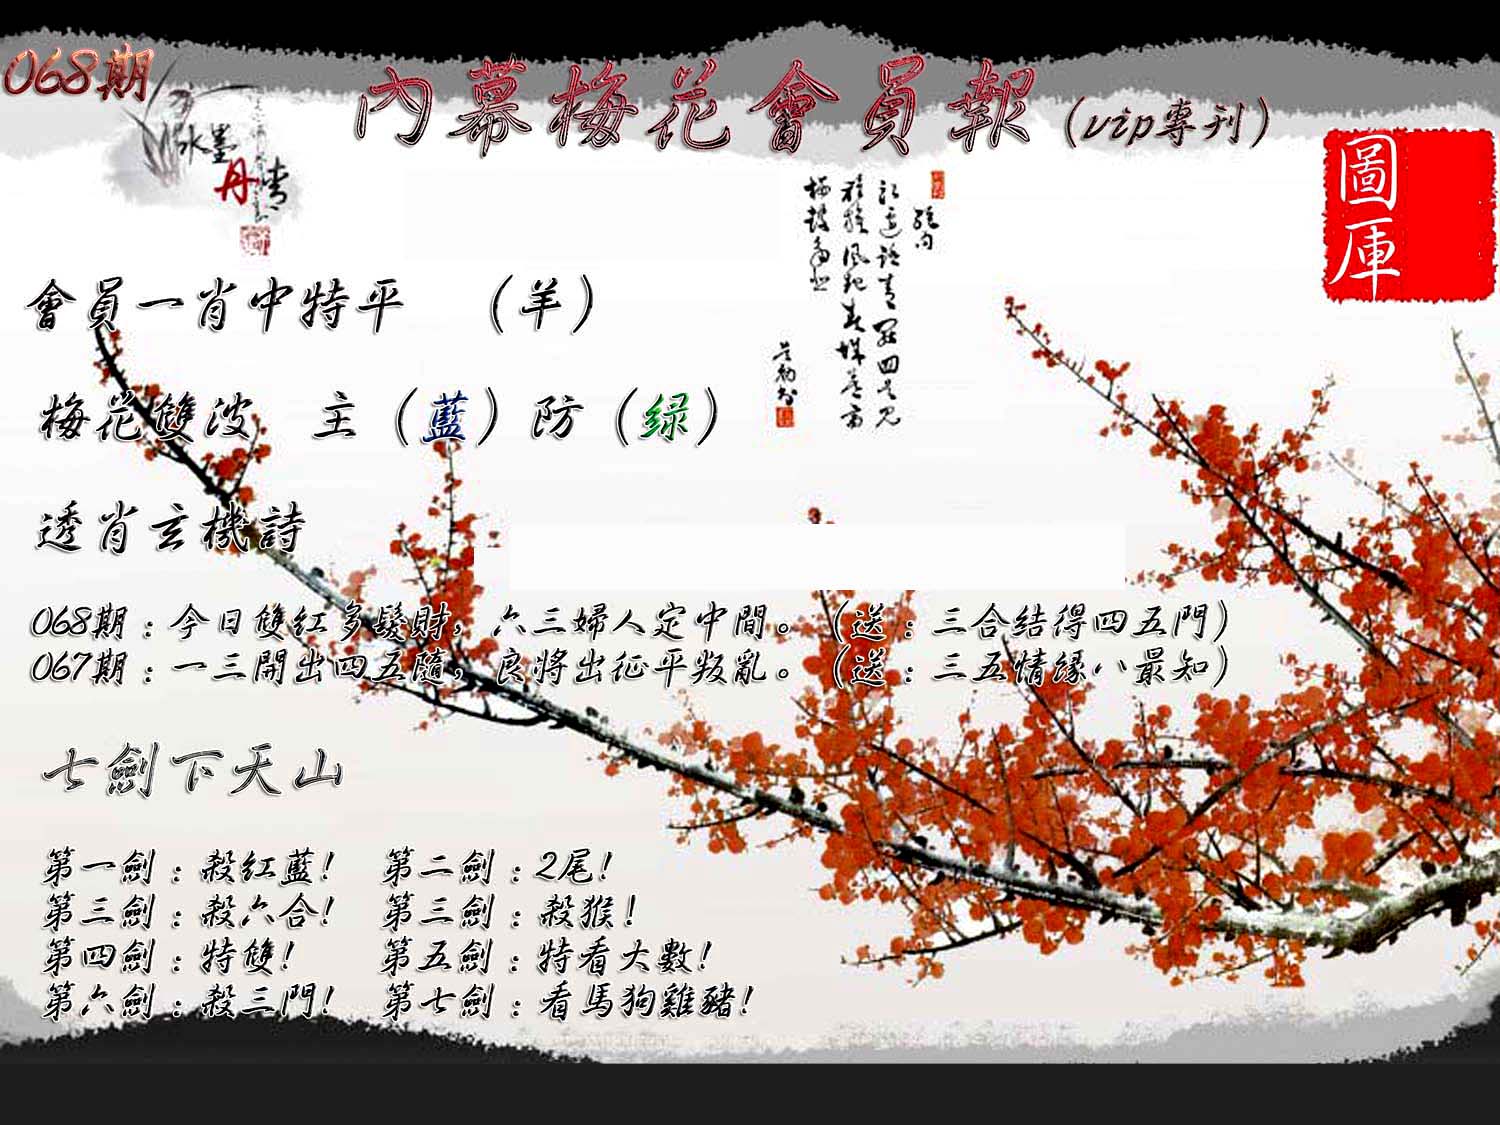 068期
內幕梅花會員報(vip專刊)
水墨
丹青
圖庫
會員一肖中特平 (羊)
梅花雙波 主(藍)防(绿)
透肖玄機詩
068期:今日雙红多髮財,六三婦人定中間。(送:三合结得四五門)
067期:一三開出四五隨,良將出征平叛亂。(送:三五情缘八最知)
七劍下天山
第一劍:殺红藍! 第二劍:2尾!
第三劍:殺六合! 第三劍:殺猴!
第四劍:特雙! 第五劍:特看大數!
第六劍:殺三門! 第七劍:看馬狗雞豬!